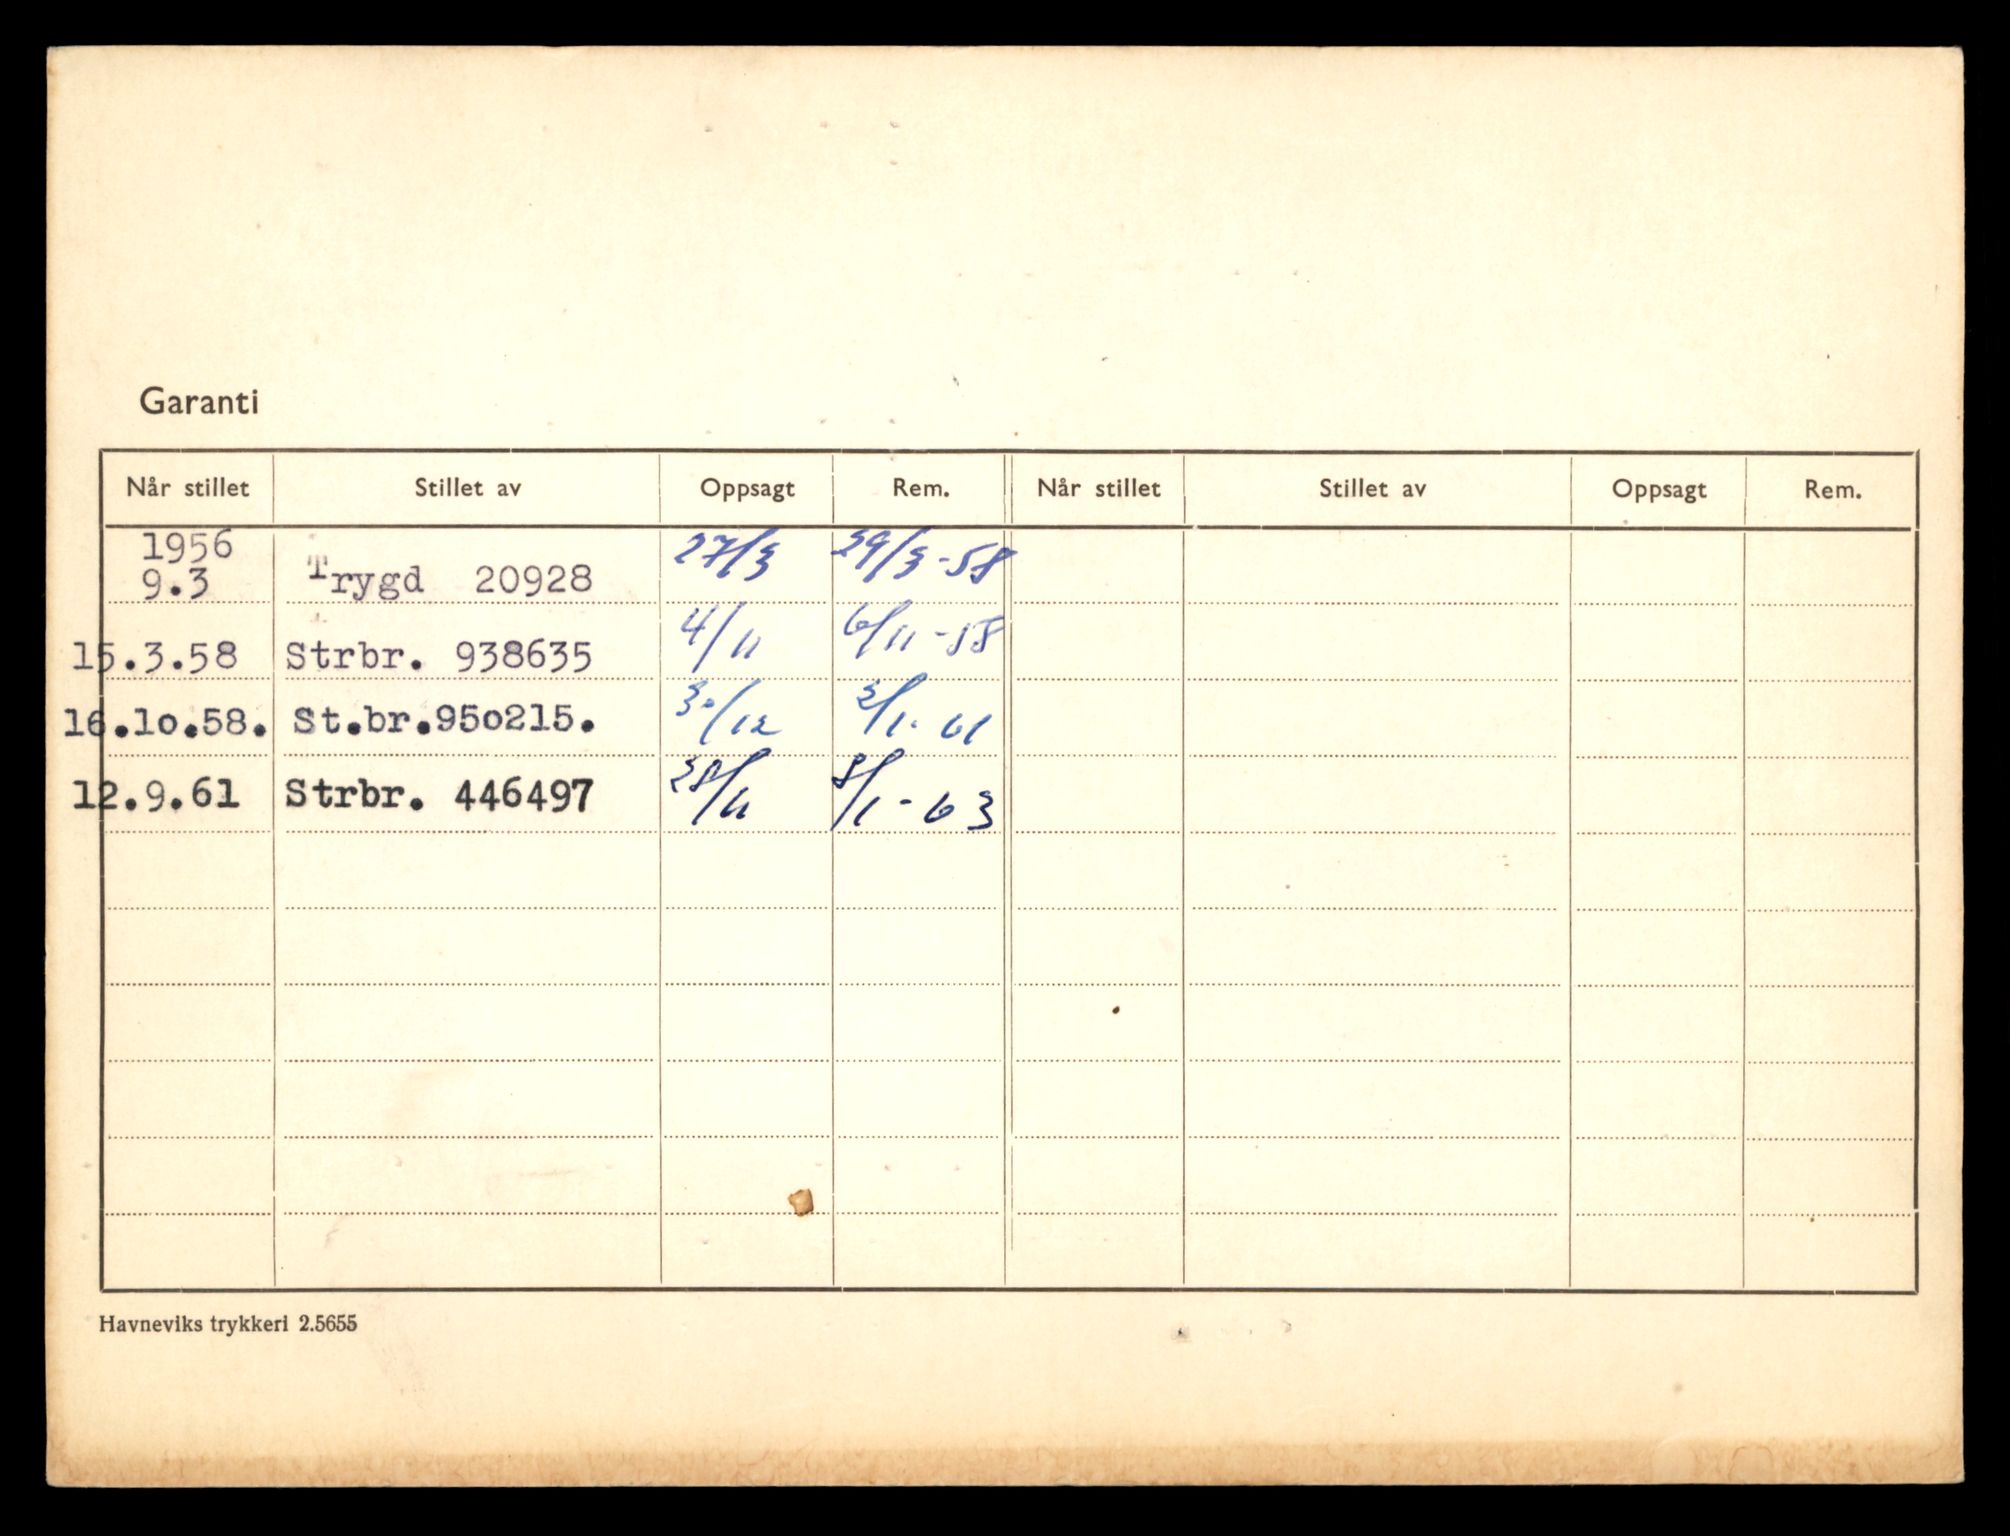 Garanti
Når stillet Stillet av Oppsagt Rem. Når stillet Stillet av Oppsagt Rem.
1956
9.3 Trygd 20928 27/3 29/3-58
15.3.58 Strbr. 938635 4/11 6/11-58
16.10.58. St.br.950215. 30/12 2/1-61
12.9.61 Strbr. 446497 28/11 8/1-63
Havneviks trykkeri 2.5655